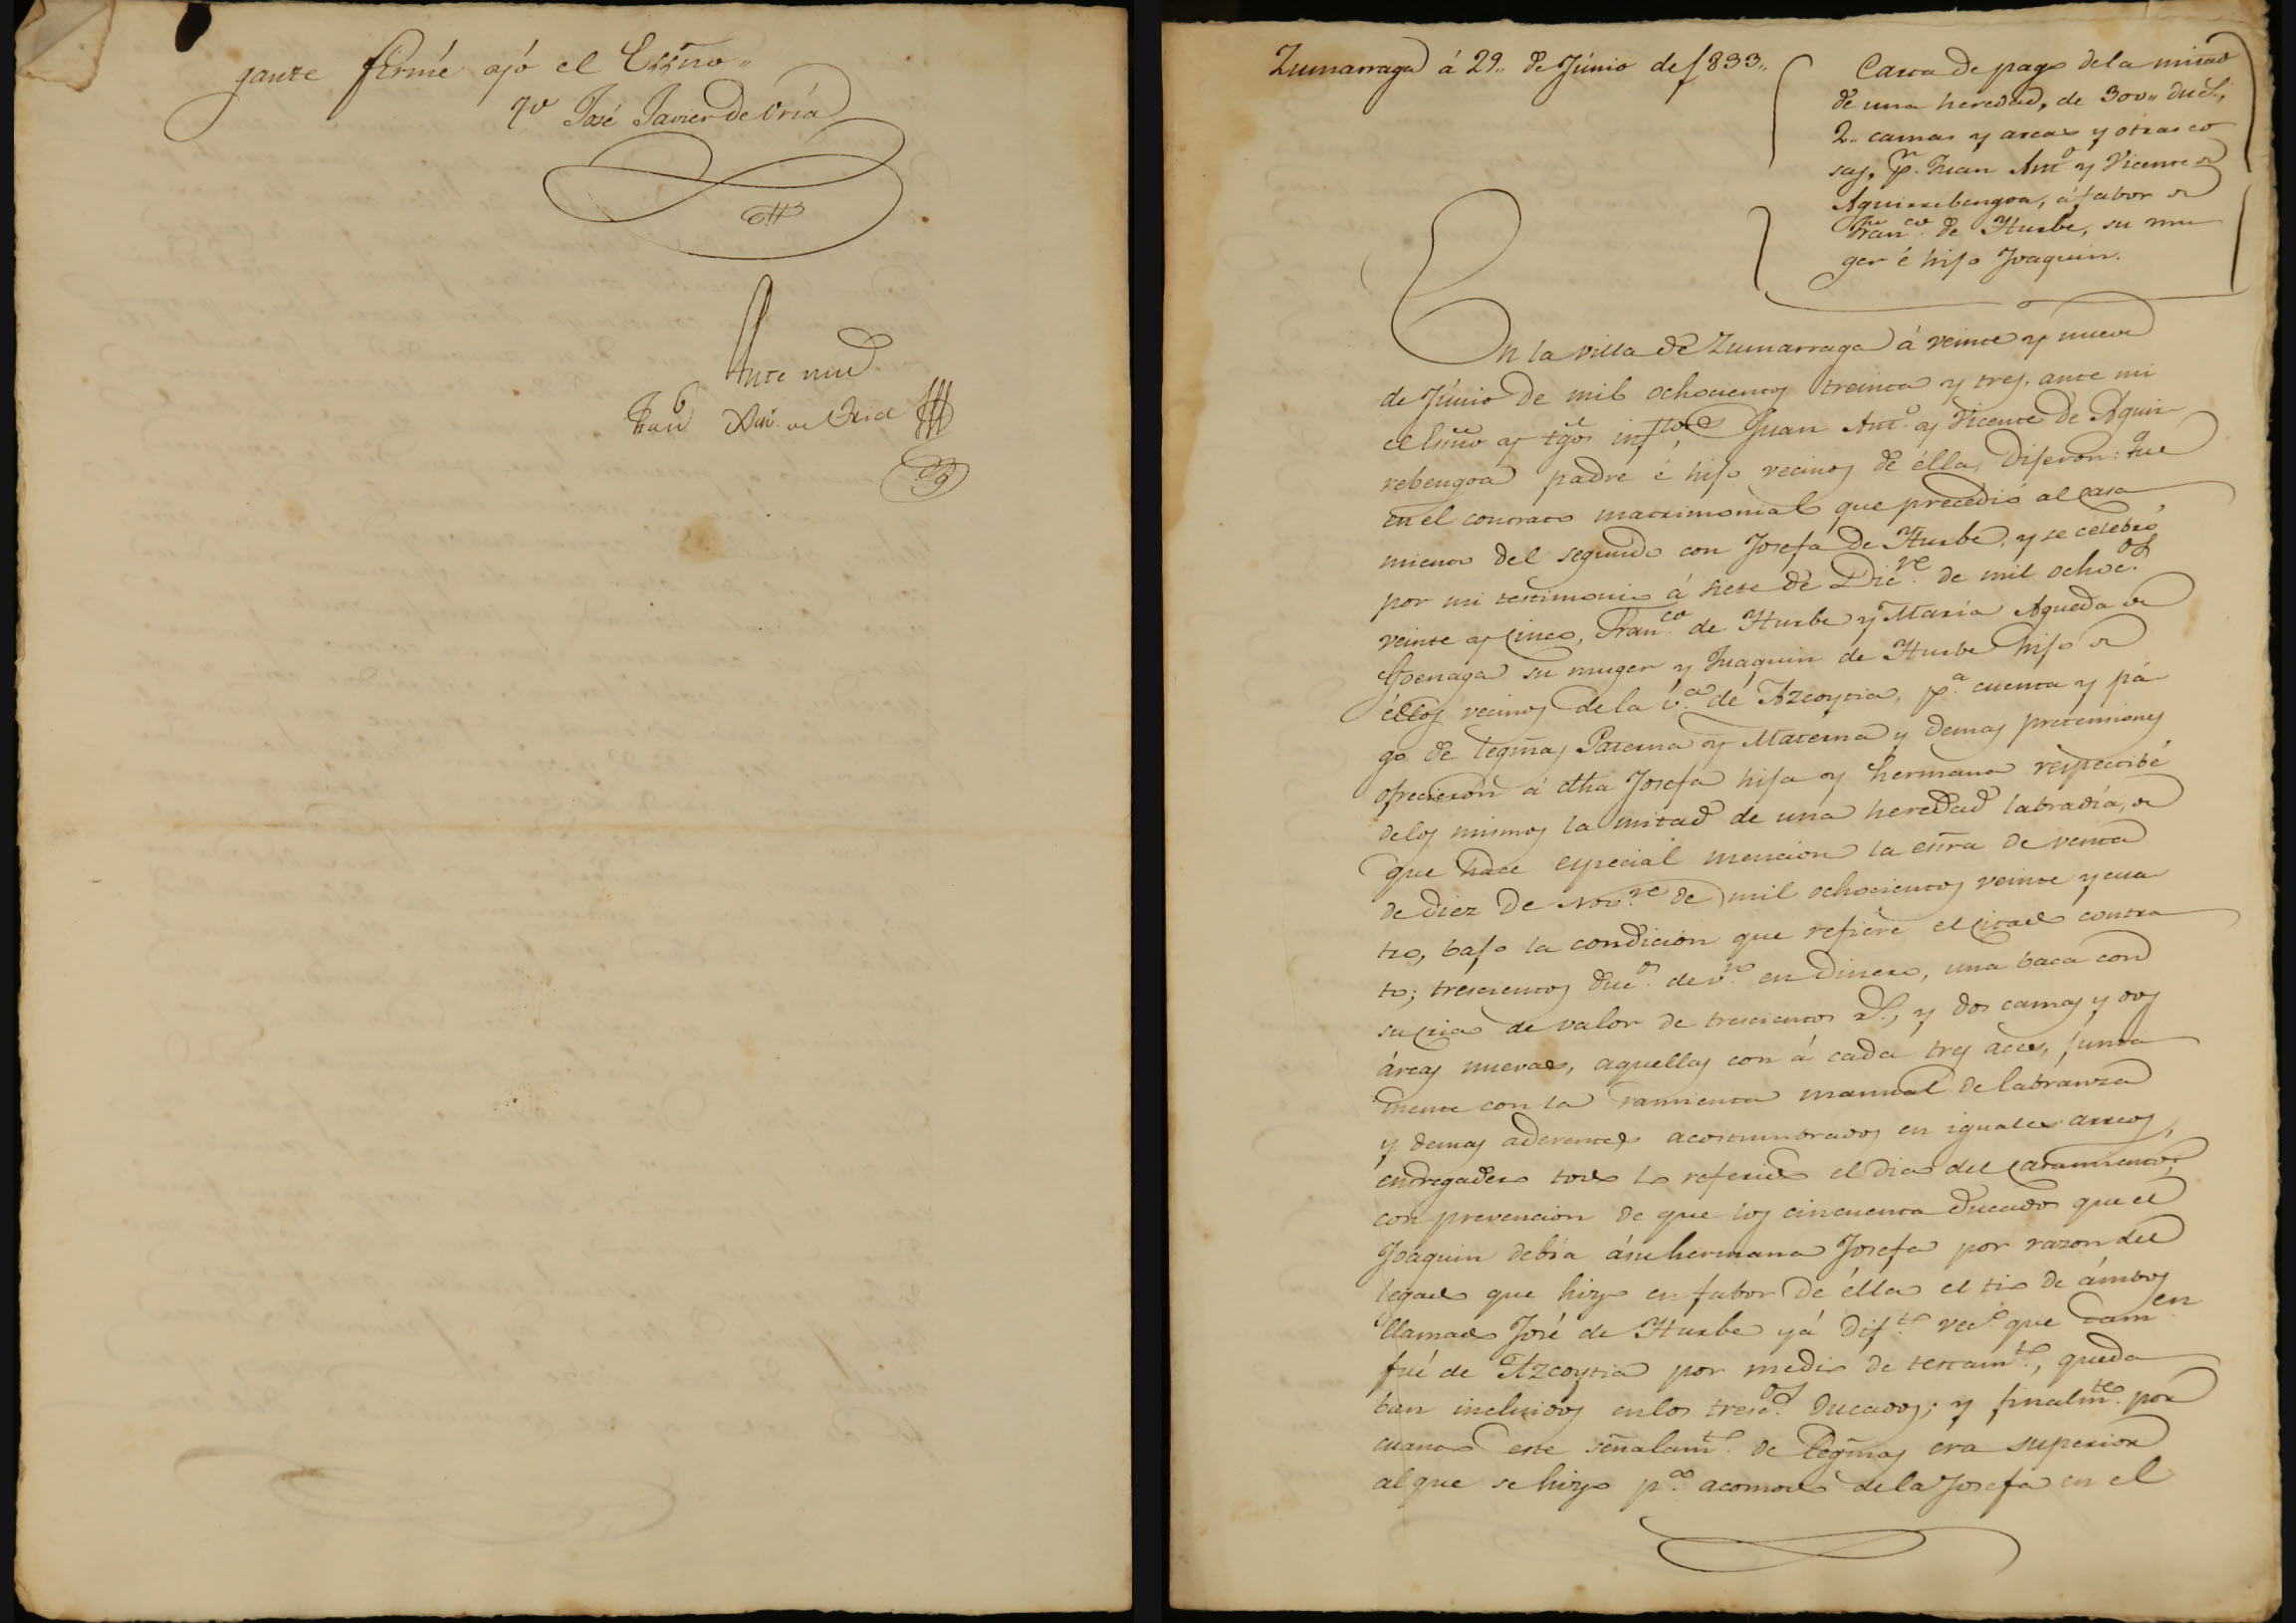 gante firmé yó el Essño"
Tº José Javier de Oria
Ante mi
Zumarraga á 29.. de Júnio de 1833..
Carta de pago de la mitad
de una heredad, de 300.. duc.s,
2.. camas y arcas y otras co
sas, pr. Juan Antº y Vicente de
Aguirrebengoa, á fabor de
Franco. de Yturbe, su mu
ger é hijo Joaquin.
En la villa de Zumarraga á veinte y nueve
de Júnio de mil ochocientos treinta y tres. ante mi
el Essno y tgos. inftos, Juan Antº. y Vicente de Aguir-
rebengoa padre é hijo vecinos de élla, Dijeron: Que
en el contrato matrimonial que precedió al casa
miento del segundo con Josefa de Yturbe, y se celebró,
por mi testimonio á siete de Dicre. de mil ochoc.os
veinte y cinco, Franco. de Yturbe y Maria Agueda de
Goenaga su muger y Juaquin de Yturbe hijo de
éllos vecinos de la v.a de Azcoytia, pa. cuenta y pá
go de legmas Paterna y Materna y demas pretensiones
ofrecieron á dha Josefa hija y hermana respectibé
de los mismos la mitad de una heredad labradía, de
que hace especial mencion la esrra de venta
de diez de Novre. de mil ochocientos veinte y cua
tro, bajo la condicion que refiere el citado contra
to; trescientos duc.s de v.n en dinero, una baca con
su cria de valor de trescientos r.s, y dos camas y dos
árcas nuevas, aquellas con á cada tres aces, junta
mente con la ramienta manual de labranza
y demas aderentes acostumbrados en iguales arreos,
entregadero todo lo referido el dia del casamiento;
con prevencion de que los cincuenta ducados que el
Joaquin debia á su hermana Josefa por razon del
legado que hizo en fabor de élla el tio de ámbos
llamado José de Yturbe yá dif.to vec.o que tam.en
fué de Azcoytia por medio de testam.to, queda
ban incluidos en los tresc.os ducados; y finalm.te por
cuanto este señalam.to de legmas éra superior
al que se hizo p.a acomodo de la Josefa en el